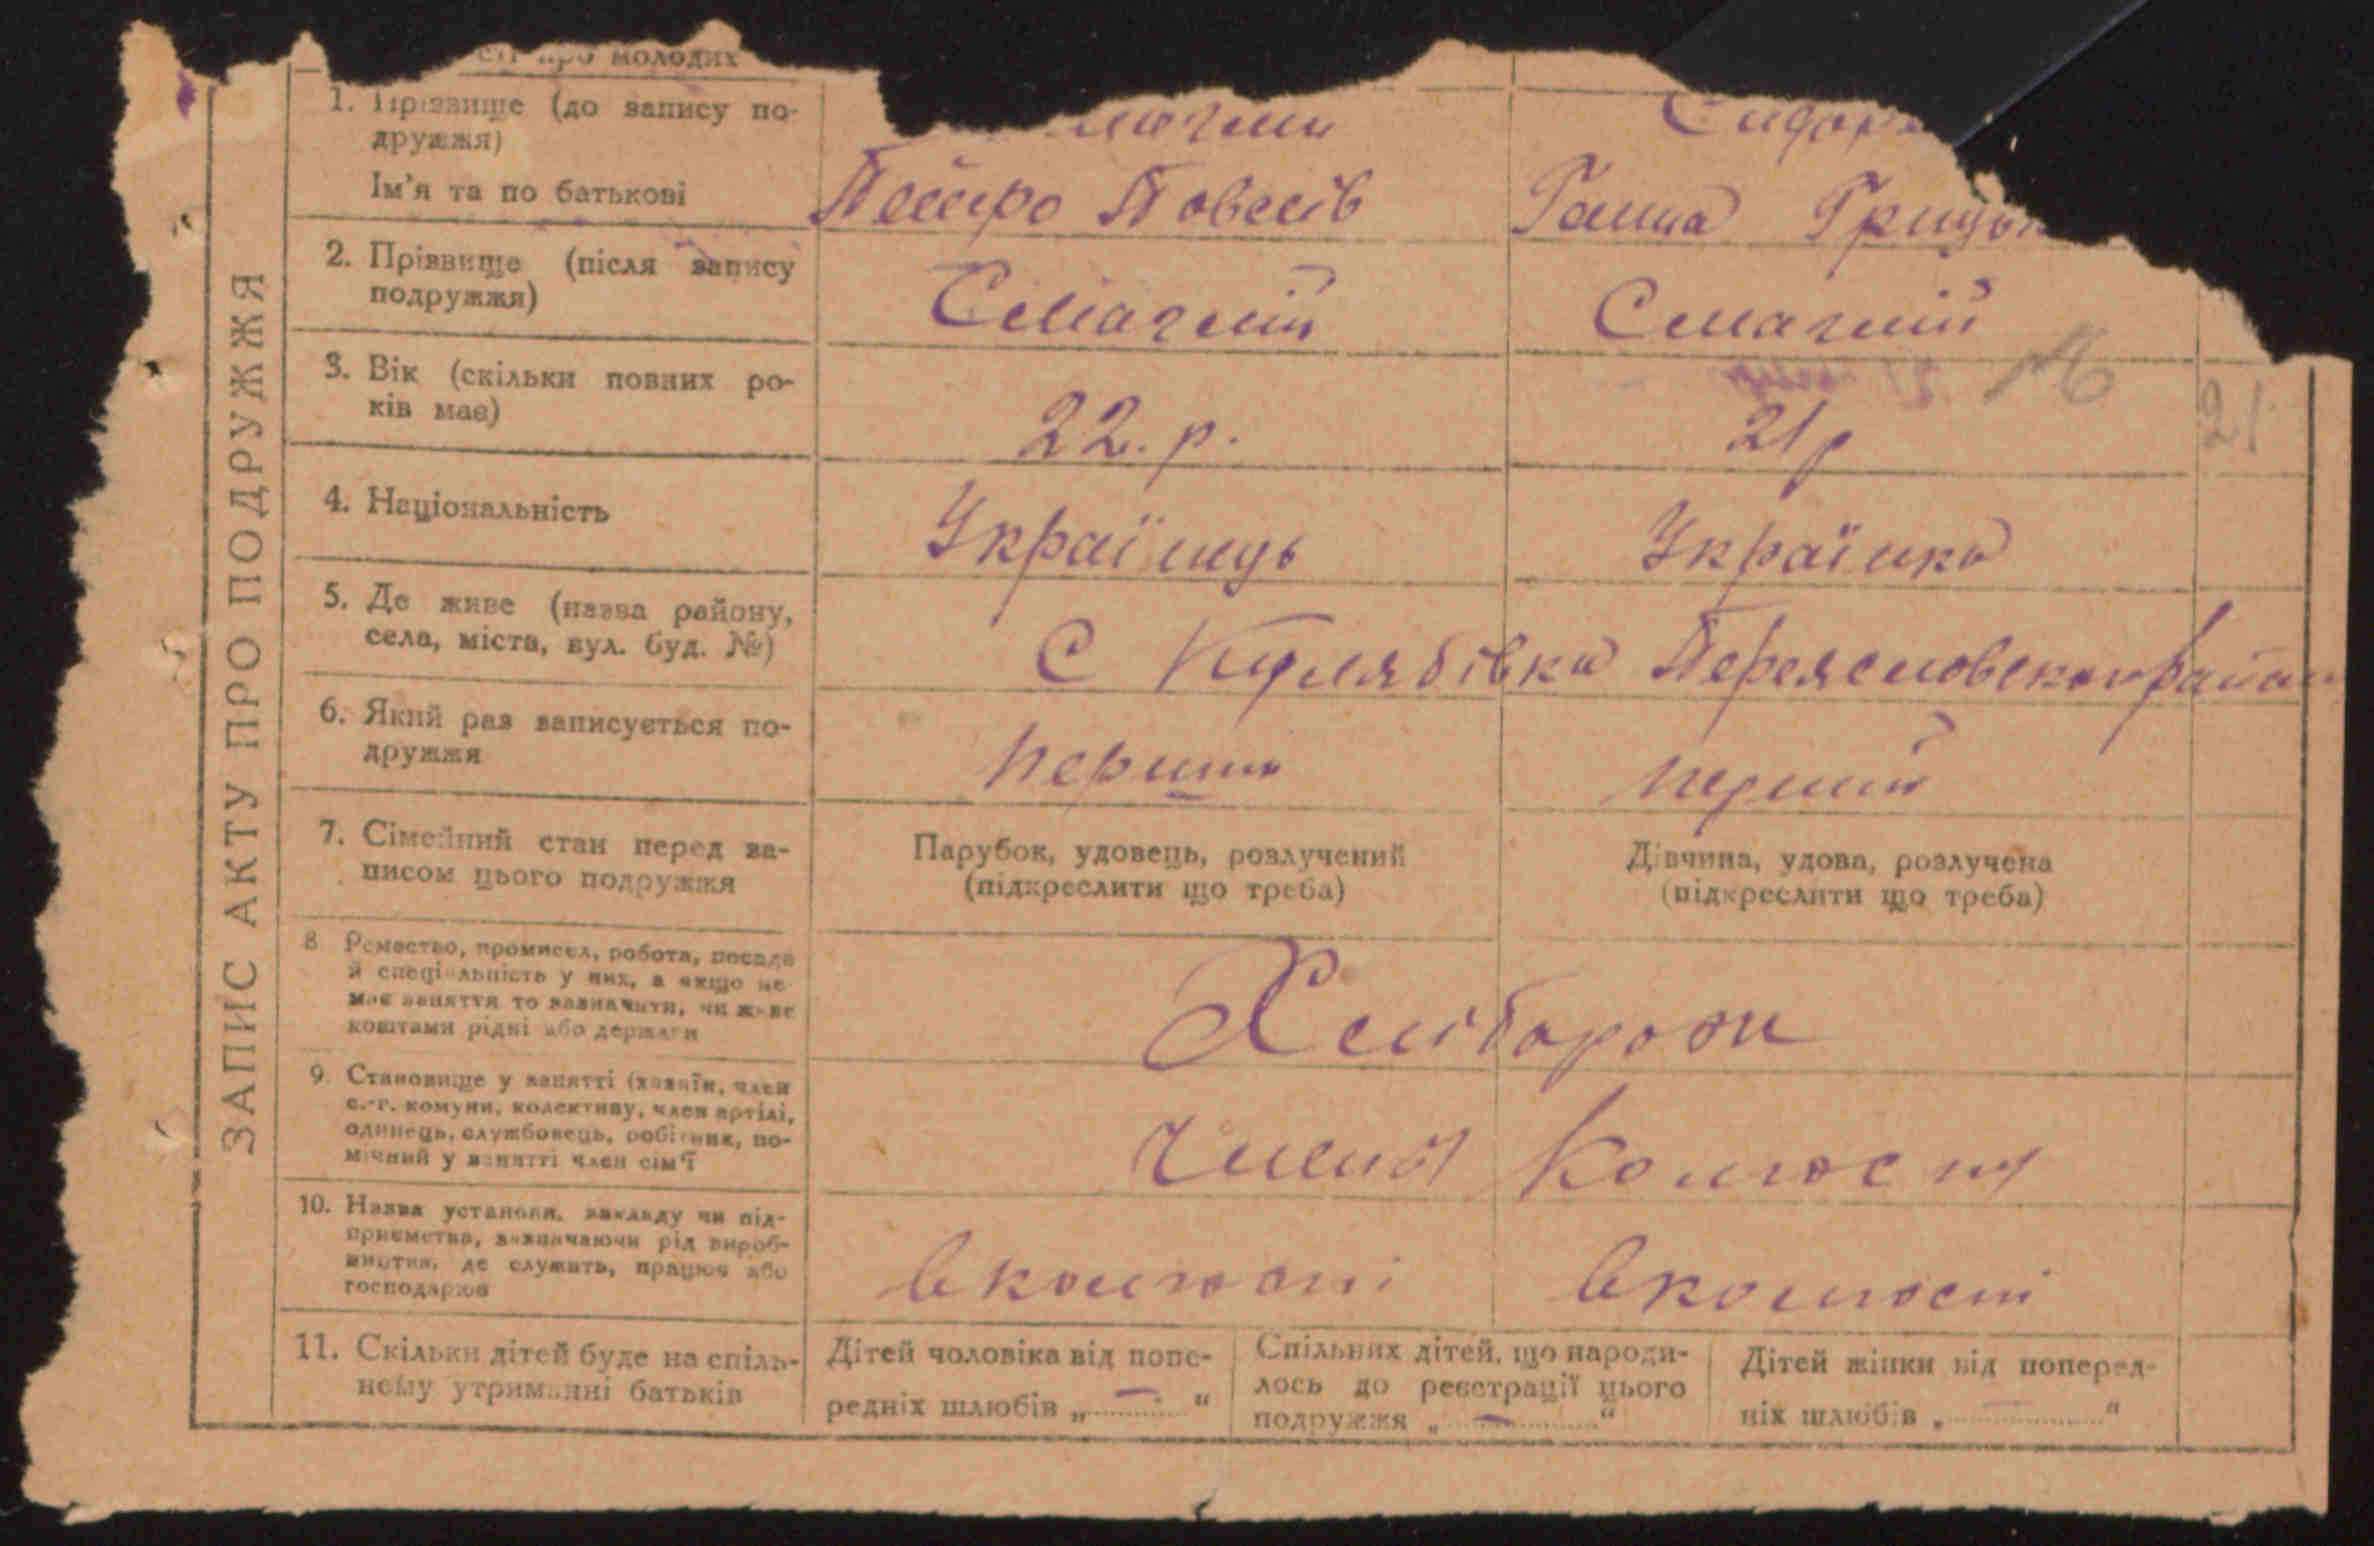 про молодих
1. Прізвище (до запису по-
дружжя)
Сидор
Ім'я та по батькові
Петро Товстів
Ганна Грицьк
2. Прізвище (після запису
подружжя)
Смаглій
Смаглій
3. Вік (скільки повних ро-
ків має)
22. р.
21 р
21
4. Національність
Українець
Українка
5. Де живе (назва району,
села, міста, вул. буд. №)
С Кулябівка Переяславськ район
6. Який раз записується по-
дружжя
перший
перший
7. Сімейний стан перед за-
писом цього подружжя
Парубок, удовець, розлучений
(підкреслити що треба)
Дівчина, удова, розлучена
(підкреслити що треба)
8 Ремество, промисел, робота, посада
й спеціальність у них, а якщо не
має заняття то зазначити, чи живе
коштами рідні або держави
Хлібороби
9. Становище у занятті (хазяїн, член
с.-г. комуни, колективу, член артілі,
одинець, службовець, робітник, по-
мічний у занятті член сім'ї
Члени Колгосп
10. Назва установи, закладу чи під-
приємства, зазначаючи рід вироб-
ництва, де служить, працює або
господарює
в колгоспі
в колгоспі
11. Скільки дітей буде на спіль-
ному утриманні батьків
Дітей чоловіка від попе-
редніх шлюбів „ — “
Спільних дітей, що народи-
лось до реєстрації цього
подружжя „ — “
Дітей жінки від поперед-
ніх шлюбів „ — “
ЗАПИС АКТУ ПРО ПОДРУЖЖЯ